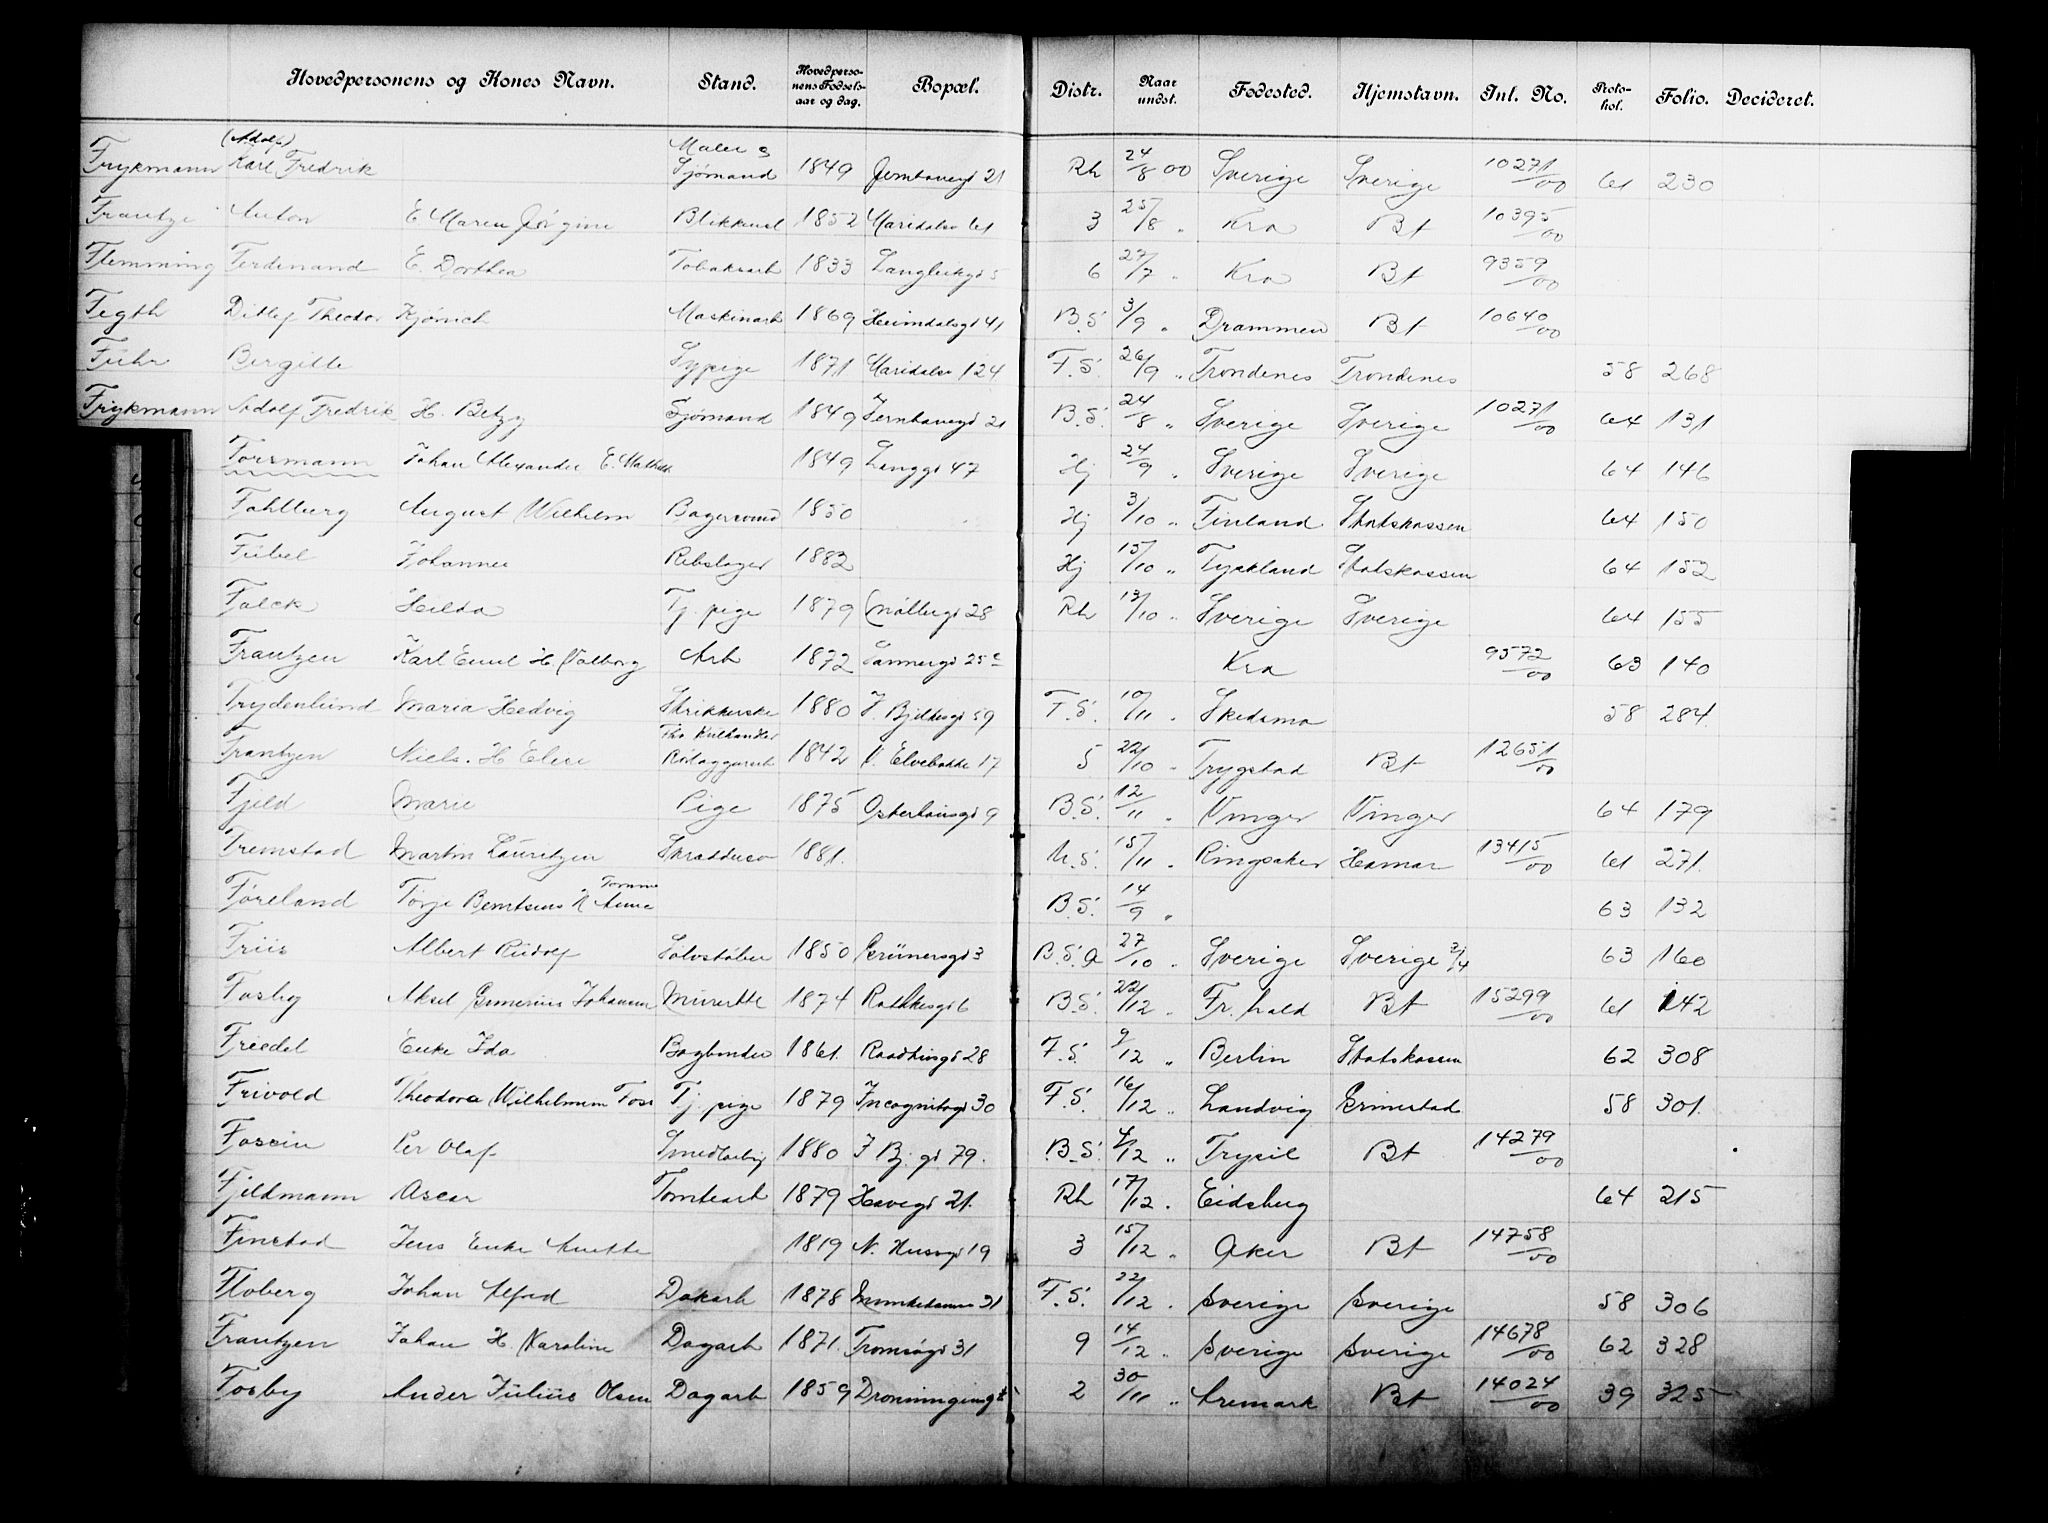 Hovedpersonens og Kones Navn. Stand. Hovedpersonens Fødselsaar og dag. Bopæl. Distr. Naar undst. Fødested. Hjemstavn. Inl. No. Protokol. Folio. Decideret.
Frykmann (Adolf) Karl Fredrik Maler & Sjømand 1849 Jernbanegd 21 Rh 24/8 00 Sverige Sverige 10271/00 61 230
Frantze Anton E. Maren Jørgine Blikkensl 1852 Maridalsv 61 3 25/8 „ Kra Bt 10395/00
Flemming Ferdinand E. Dorthea Tobaksarb 1833 Langleikgd 5 6 27/7 „ Kra Bt 9359/00
Fegth Ditlef Theodor Kjønich Maskinarb 1869 Heimdalsgd 41 B.S. 3/9 „ Drammen Bt 10640/00
Führ Bergitte Sypige 1871 Maridalsv 124 F.S. 26/9 „ Trondenes Trondenes 58 268
Frykmann Adolf Fredrik H. Betzy Sjømand 1849 Jernbanegd 21 B.S. 24/8 „ Sverige Sverige 10271/00 64 131
Forsmann Johan Alexander E. Mathild 1849 Langgd 47 Hj 24/9 „ Sverige Sverige 64 146
Fahlburg August Wilhelm Bagersvend 1850 Hj 3/10 „ Finland Statskassen 64 150
Fübel Johannes Rebslager 1882 Hj 15/10 „ Tyskland Statskassen 64 152
Falck Hilda Tj. pige 1879 Møllergd 28 Rh 13/10 „ Sverige Sverige 64 155
Frantzen Karl Emil H. Valborg Arb 1872 Sannergd 25 c Kra 9572/00 63 140
Frydenlund Maria Hedvig Strikkerske 1880 J. Bjelkesgd 59 F.S. 10/11 „ Skedsmo 58 284
Frantzen Niels. H Elise 1842 N. Elvebakke 17 5 22/10 „ Trygstad Bt 12651/00
Fjeld Marie Pige 1875 Osterhausgd 9 B.S. 12/11 „ Vinger Vinger 64 179
Fremstad Martin Lauritzen Skræddersv 1881. U.S. 15/11 „ Ringsaker Hamar 13415/00 61 271.
Føreland Torje Berntsens H Tomine Anne B.S. 14/9 „ 63 132
Friis Albert Rudolf Sølvstøber 1850 Grünersgd 3 B.S.a 27/10 „ Sverige Sverige 3/4 63 160
Fosby Aksel Gunerius Johannes Murerbtt 1874 Rathkesgd 6 B.S. 22/12 „ Fr.hald Bt 15299/00 61 142
Freedel Enke Ida Bogbinder 1861. Raadhusgd 28 F.S. 9/12 „ Berlin Statskassen 62 308
Frivold Theodora Wilhelmine Foss Tj. pige 1879 Incognitogd 30 F.S. 16/12 „ Landvig Grimstad 58 301.
Fossin Per Olaf Smedlærlg 1880 J Bj. gd 79. B.S. 4/12 „ Trysil Bt 14279/00
Fjeldmann Oscar Tomtearb 1879 Havegd 21. Rh 17/12 „ Eidsberg 64 215
Finstad Jens Enke Anette 1819 N. Husvgd 19 3 15/12 „ Aker Bt 14758/00
Floberg Johan Alfred Dokarb 1878 Munkedamsv 31 F.S. 22/12 „ Sverige Sverige 58 306
Frantzen Johan H. Karoline Dagarb 1871. Tromsøgd 31 9 14/12 „ Sverige Sverige 14678/00 62 328
Fosby Ander Julius Olsen Dagarb 1859 Dronningensgd 2 30/11 „ Aremark Bt 14024/00 39 325